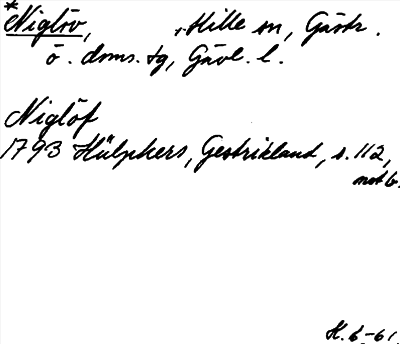 *Niglöv, Hille sn, Gästr.
ö. doms. tg, Gävl. l.
Niglöf
1793 Hülphers, Gestrikland, s. 112,
not b.
H. G-61.